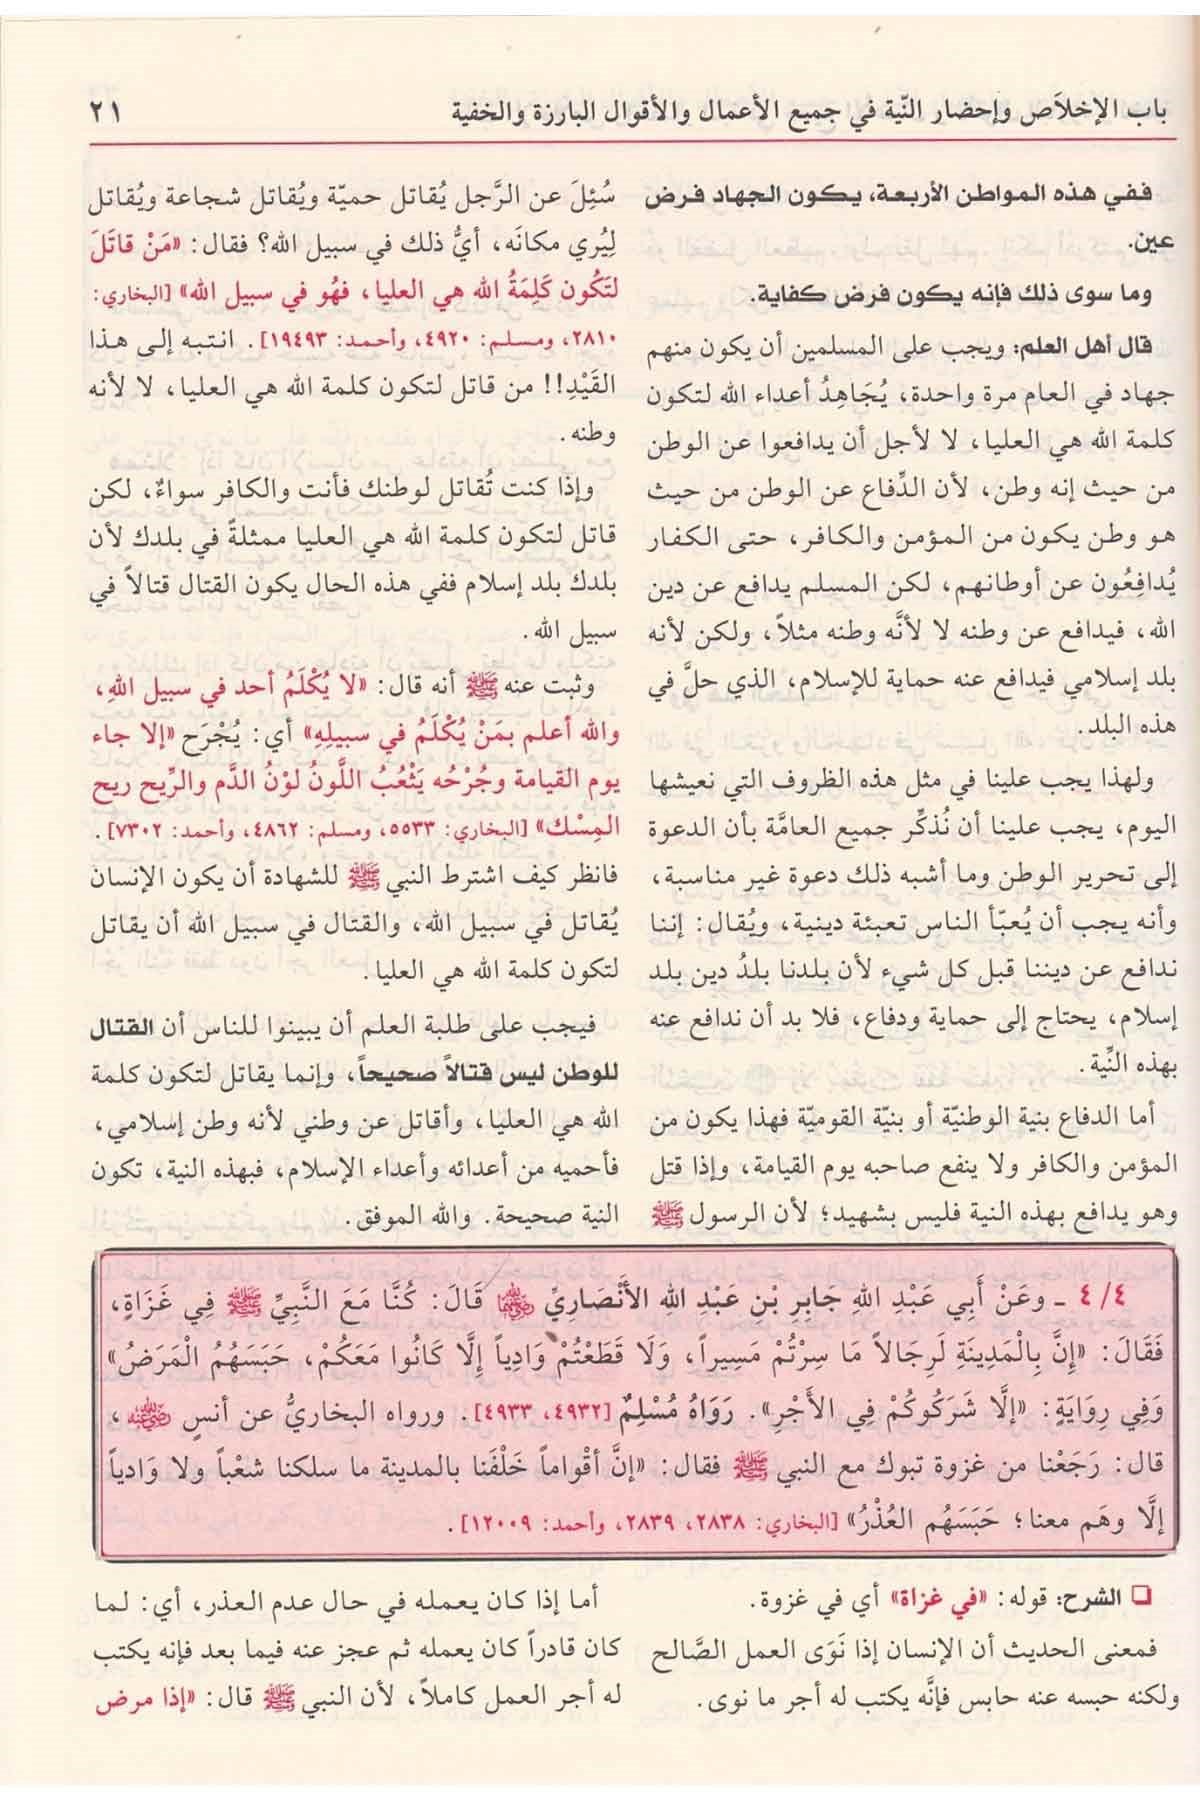 باب الإخلاَص وإحضار النّية في جميع الأعمال والأقوال البارزة والخفية ٢١
ففي هذه المواطن الأربعة، يكون الجهاد فرض
عين.
وما سوى ذلك فإنه يكون فرض كفاية.
قال أهل العلم: ويجب على المسلمين أن يكون منهم
جهاد في العام مرة واحدة، يُجَاهِدُ أعداء الله لتكون
كلمة الله هي العليا، لا لأجل أن يدافعوا عن الوطن
من حيث إنه وطن، لأن الدِّفاع عن الوطن من حيث
هو وطن يكون من المؤمن والكافر، حتى الكفار
يُدافِعُون عن أوطانهم، لكن المسلم يدافع عن دين
الله، فيدافع عن وطنه لا لأنَّه وطنه مثلاً، ولكن لأنه
بلد إسلامي فيدافع عنه حماية للإسلام، الذي حلَّ في
هذه البلد.
ولهذا يجب علينا في مثل هذه الظروف التي نعيشها
اليوم، يجب علينا أن نُذكِّر جميع العامَّة بأن الدعوة
إلى تحرير الوطن وما أشبه ذلك دعوة غير مناسبة،
وأنه يجب أن يُعبّأ الناس تعبئة دينية، ويُقال: إننا
ندافع عن ديننا قبل كل شيء لأن بلدنا بلدُ دين بلد
إسلام، يحتاج إلى حماية ودفاع، فلا بد أن ندافع عنه
بهذه النِّية.
أما الدفاع بنية الوطنيّة أو بنيّة القوميّة فهذا يكون من
المؤمن والكافر ولا ينفع صاحبه يوم القيامة، وإذا قتل
وهو يدافع بهذه النية فليس بشهيد؛ لأن الرسول ﷺ
سُئِلَ عن الرَّجل يُقاتل حميّة ويُقاتل شجاعة ويُقاتل
لِيُري مكانَه، أيُّ ذلك في سبيل الله؟ فقال: «مَنْ قاتَلَ
لتَكُون كَلِمَةُ الله هي العليا، فهُو في سبيل الله» [البخاري:
٢٨١٠، ومسلم: ٤٩٢٠، وأحمد: ١٩٤٩٣]. انتبه إلى هذا
القَيْدِ!! من قاتل لتكون كلمة الله هي العليا، لا لأنه
وطنه.
وإذا كنت تُقاتل لوطنك فأنت والكافر سواءٌ، لكن
قاتل لتكون كلمة الله هي العليا ممثلةً في بلدك لأن
بلدك بلد إسلام ففي هذه الحال يكون القتال قتالاً في
سبيل الله.
وثبت عنه ﷺ أنه قال: «لا يُكْلَمُ أحد في سبيل اللهِ،
والله أعلم بمَنْ يُكْلَمُ في سبيلِهِ» أي: يُجْرَح «إلا جاء
يوم القيامة وجُرْحُه يَثْعُبُ اللَّونُ لوْنُ الدَّم والرِّيح ريح
المِسْك» [البخاري: ٥٥٣٣، ومسلم: ٤٨٦٢، وأحمد: ٧٣٠٢].
فانظر كيف اشترط النبي ﷺ للشهادة أن يكون الإنسان
يُقاتل في سبيل الله، والقتال في سبيل الله أن يقاتل
لتكون كلمة الله هي العليا.
فيجب على طلبة العلم أن يبينوا للناس أن القتال
للوطن ليس قتالاً صحيحاً، وإنما يقاتل لتكون كلمة
الله هي العليا، وأقاتل عن وطني لأنه وطن إسلامي،
فأحميه من أعدائه وأعداء الإسلام، فبهذه النية، تكون
النية صحيحة. والله الموفق.
٤/ ٤ ـ وعَنْ أَبِي عَبْدِ اللهِ جَابِرِ بْنِ عَبْدِ الله الأَنْصَارِيِّ رضي الله عنهما قَالَ: كُنَّا مَعَ النَّبِيِّ ﷺ فِي غَزَاةٍ،
فَقَالَ: «إِنَّ بِالْمَدِينَةِ لَرِجَالاً مَا سِرْتُمْ مَسِيراً، وَلَا قَطَعْتُمْ وَادِياً إِلَّا كَانُوا مَعَكُمْ، حَبَسَهُمُ الْمَرَضُ»
وَفِي رِوَايَةٍ: «إِلَّا شَرَكُوكُمْ فِي الأَجْرِ». رَوَاهُ مُسْلِمٌ [٤٩٣٢، ٤٩٣٣]. ورواه البخاريُّ عن أنسٍ رضي الله عنه،
قال: رَجَعْنا من غزوة تبوك مع النبي ﷺ فقال: «إنَّ أقْواماً خَلْفَنا بالمدينة ما سلكنا شعْباً ولا وَادياً
إلَّا وهَم معنا؛ حَبَسَهُم العُذْرُ» [البخاري: ٢٨٣٨، ٢٨٣٩، وأحمد: ١٢٠٠٩].
❏ الشرح: قوله: «في غزاة» أي في غزوة.
فمعنى الحديث أن الإنسان إذا نَوَى العمل الصَّالح
ولكنه حبسه عنه حابس فإنَّه يكتب له أجر ما نوى.
أما إذا كان يعمله في حال عدم العذر، أي: لما
كان قادراً كان يعمله ثم عجز عنه فيما بعد فإنه يكتب
له أجر العمل كاملاً، لأن النبي ﷺ قال: «إذا مرض